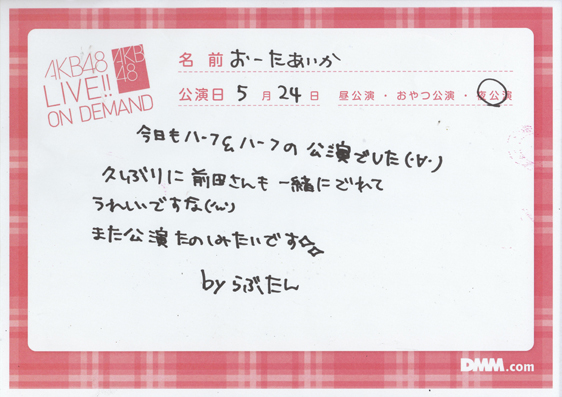 AKB48
LIVE!!
ON DEMAND
AKB
48
名前 おーたあいか
公演日 5月24日 昼公演・おやつ公演・夜公演
今日もハーフ&ハーフの公演でした(・∀・)
久しぶりに前田さんも一緒にでれて
うれしいですな(^ω^)
また公演たのしみたいです☆☆
by らぶたん
DMM.com